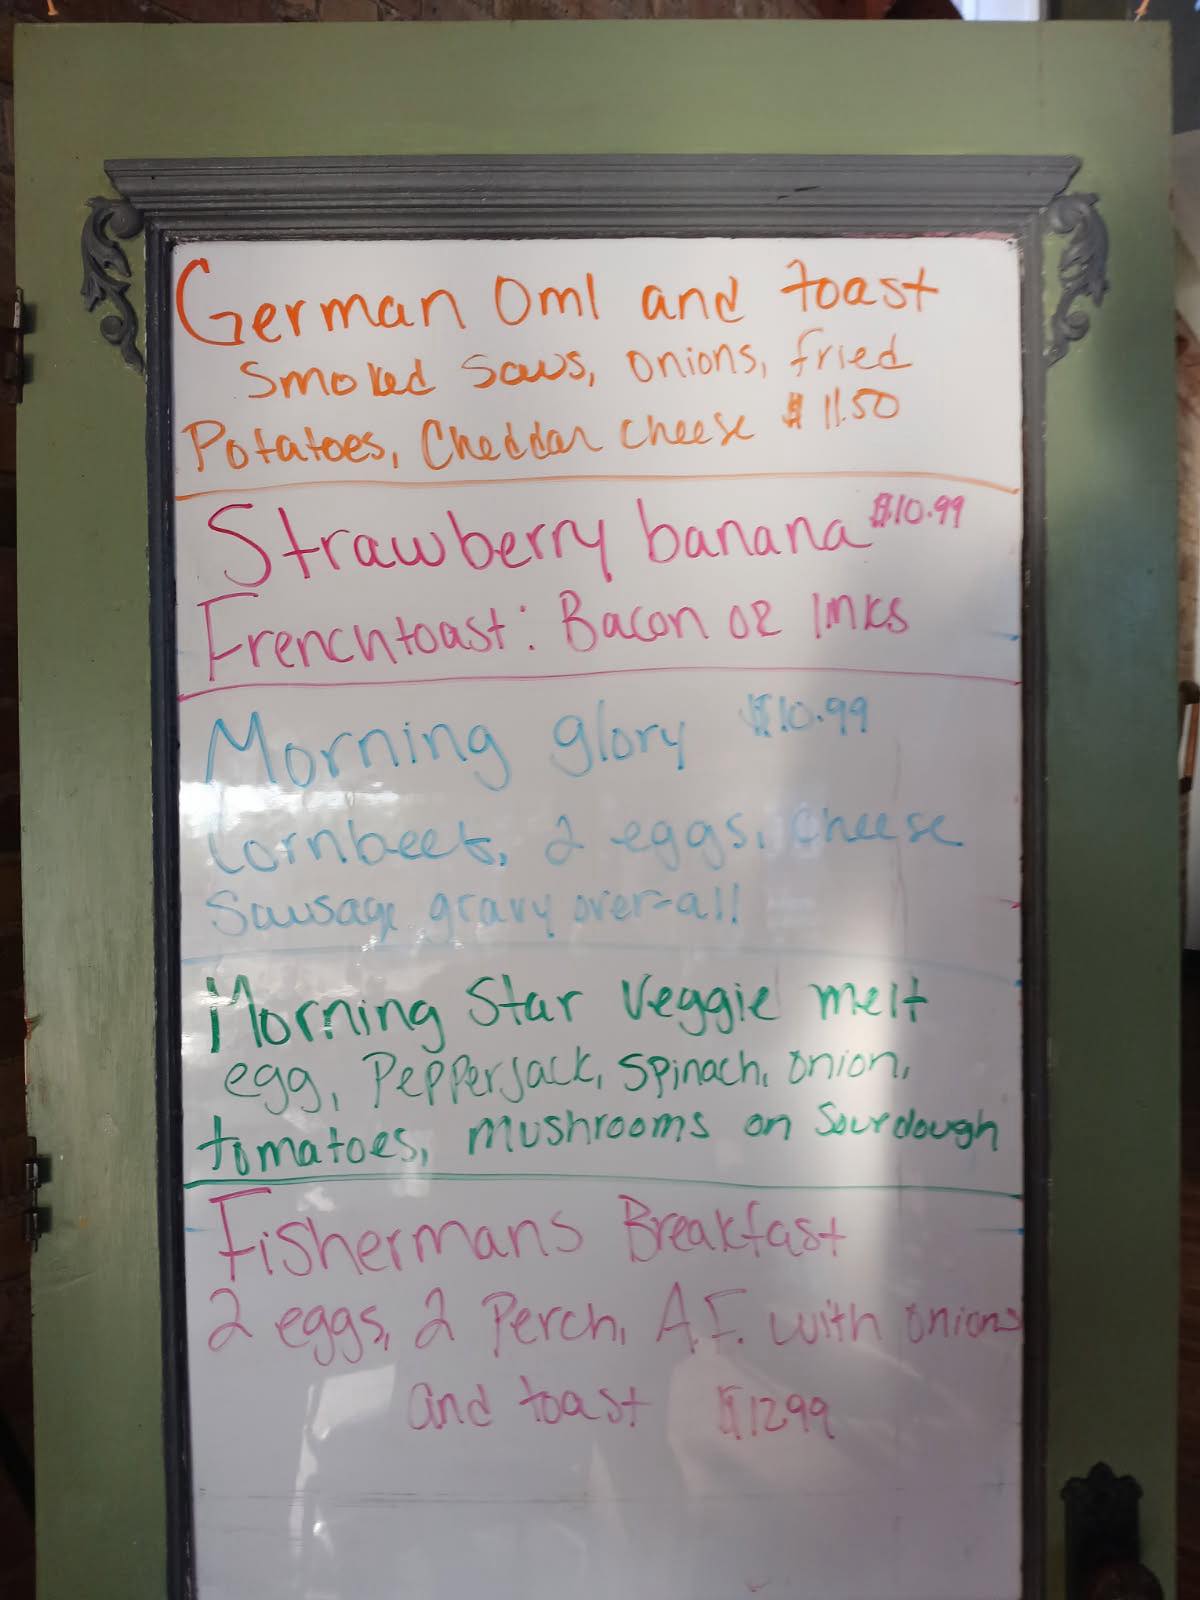 German Oml and toast
Smoked Saus, onions, fried
Potatoes, Cheddar cheese $11.50
Strawberry banana $10.99
Frenchtoast: Bacon or links
Morning glory $10.99
Cornbeets, 2 eggs, cheese
Sausage gravy over-all
Morning Star Veggie melt
egg, Pepperjack, spinach, onion,
tomatoes, mushrooms on Sourdough
Fishermans Breakfast
2 eggs, 2 Perch, A.F. with onions
and toast $12.99